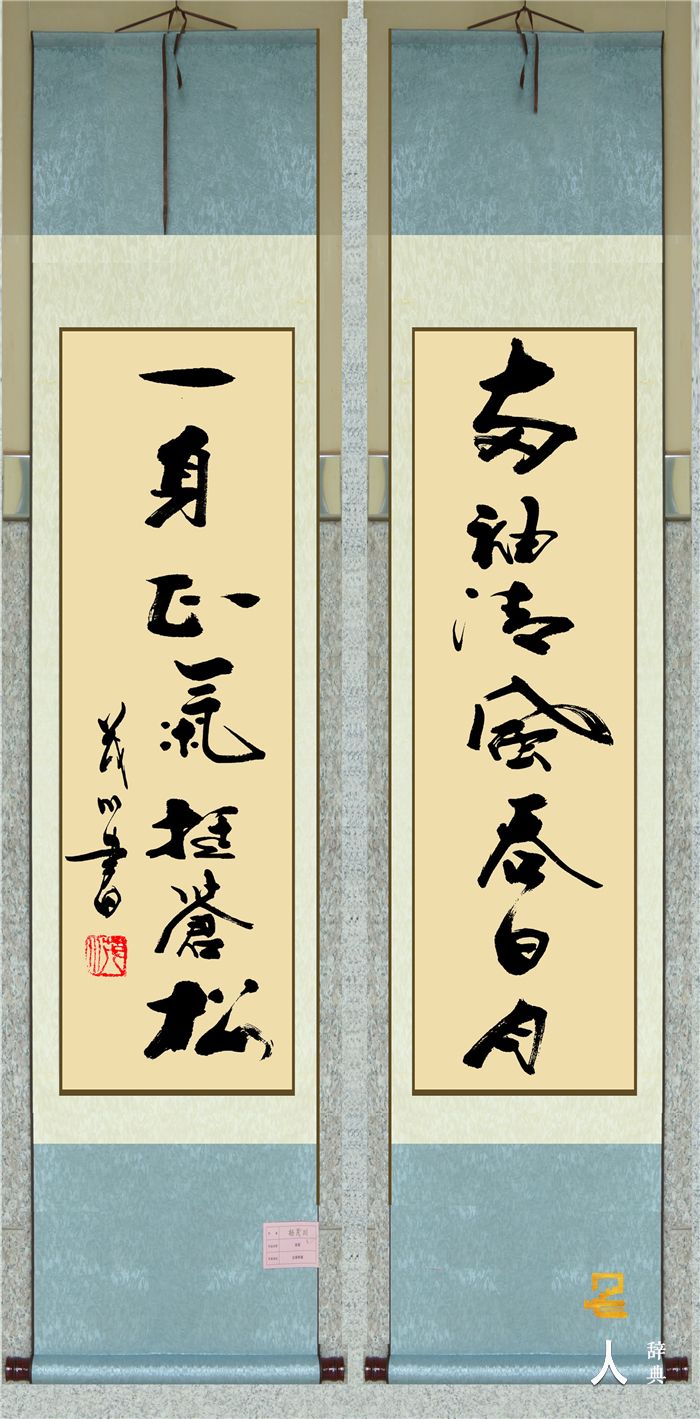 两袖清风吞日月
一身正氣挂蒼松
茂川書
人
辞典